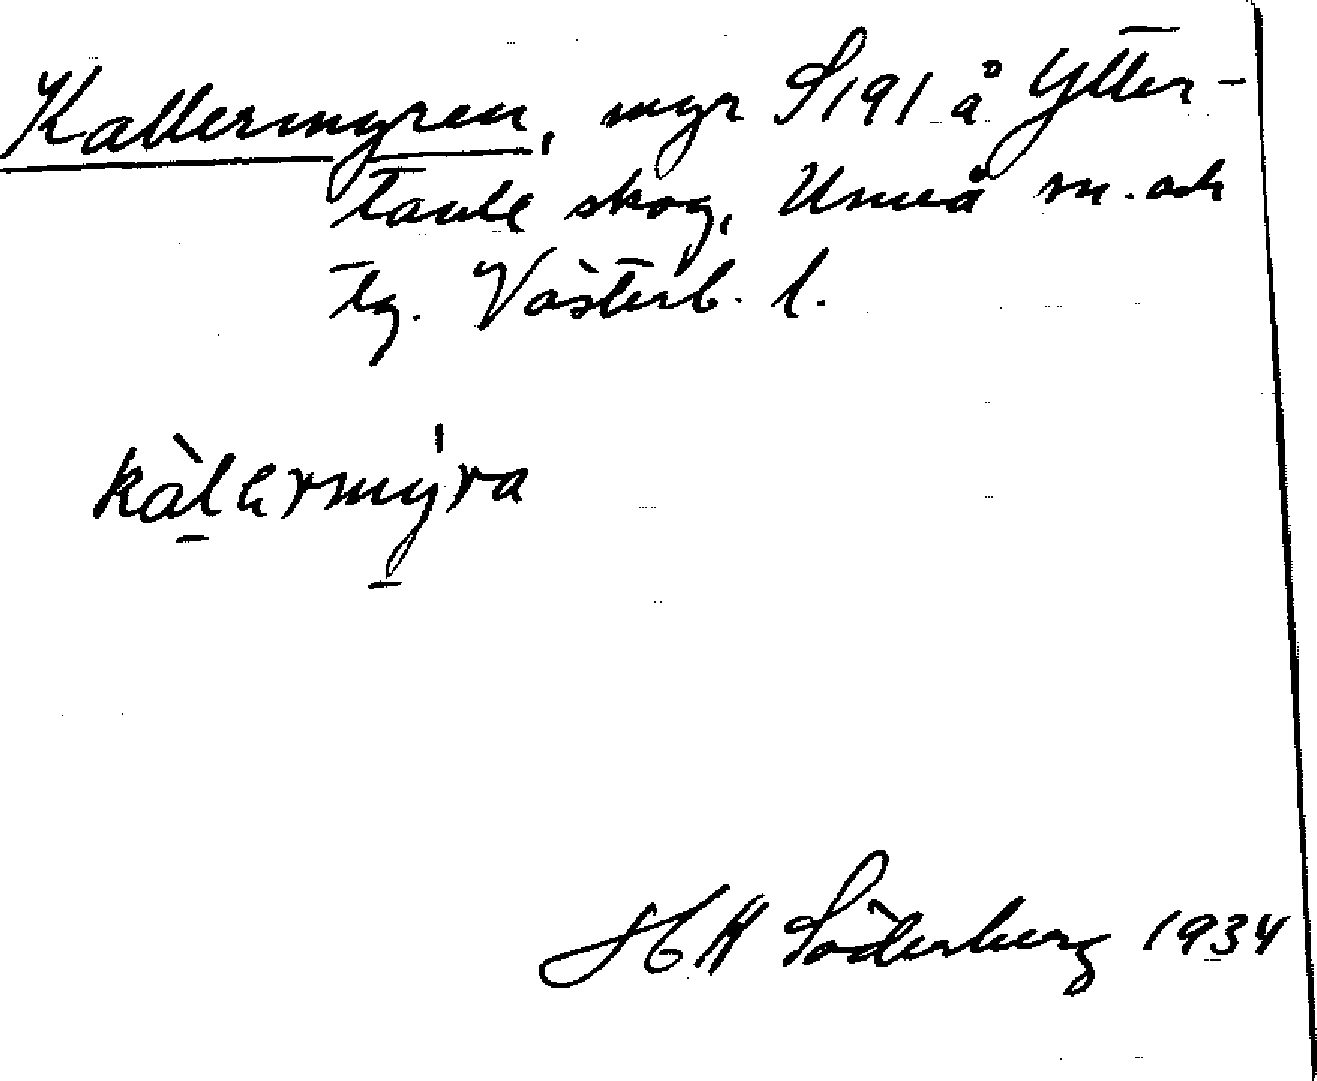 Kallermyren, myr S191 å Ytter-
tavle skog, Umeå sn. och
tg. Västerb. l.
kàlermýra
H Söderberg 1934